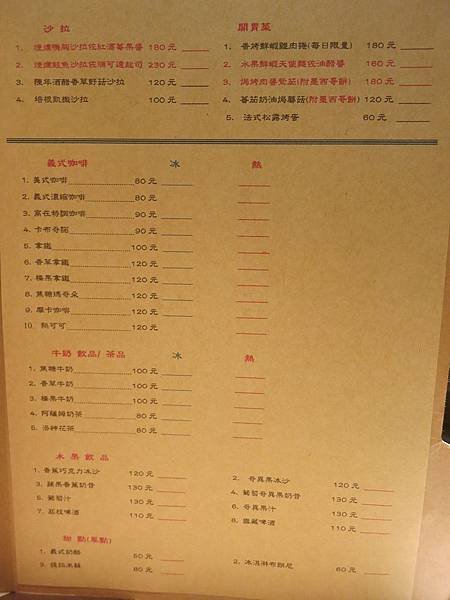 沙拉
1. 煙燻鴨胸沙拉佐紅酒莓果醬 180元
2. 煙燻鮭魚沙拉佐瑞可達起司 230元
3. 陳年酒醋香草野菇沙拉 120元
4. 培根凱撒沙拉 100元
開胃菜
1. 香烤鮮蝦雞肉捲(每日限量) 180元
2. 水果鮮蝦天使麵佐油醋醬 160元
3. 焗烤肉醬紫茄(附墨西哥餅) 180元
4. 蕃茄奶油焗蘑菇(附墨西哥餅) 120元
5. 法式松露烤蛋 60元
義式咖啡 冰 熱
1. 美式咖啡 80元
2. 義式濃縮咖啡 80元
3. 高在特調咖啡 90元
4. 卡布奇諾 90元
5. 拿鐵 100元
6. 香草拿鐵 120元
7. 榛果拿鐵 120元
8. 焦糖瑪奇朵 120元
9. 摩卡咖啡 120元
10. 熱可可 120元
牛奶 飲品/茶品 冰 熱
1. 焦糖牛奶 100元
2. 香草牛奶 100元
3. 榛果牛奶 100元
4. 阿薩姆奶茶 80元
5. 洛神花茶 60元
水果飲品
1. 香蕉巧克力冰沙 120元
2. 奇異果冰沙 120元
3. 蘋果香蕉奶昔 130元
4. 葡萄奇異果奶昔 130元
5. 葡萄汁 130元
6. 奇異果汁 130元
7. 荔枝啤酒 110元
8. 啤酒 110元
甜點(單點)
1. 義式奶酪 50元
2. 冰淇淋布朗尼 60元
3. 80元